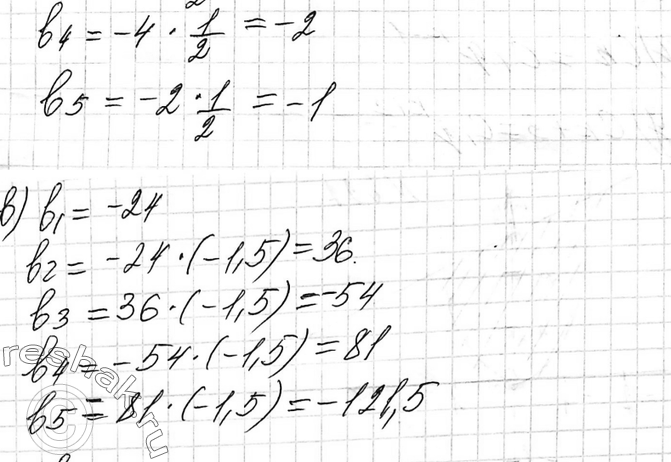 b₄ = -4 · 1/2 = -2
b₅ = -2 · 1/2 = -1
в) b₁ = -24
b₂ = -24 · (-1,5) = 36.
b₃ = 36 · (-1,5) = -54
b₄ = -54 · (-1,5) = 81
b₅ = 81 · (-1,5) = -121,5
©reshak.ru